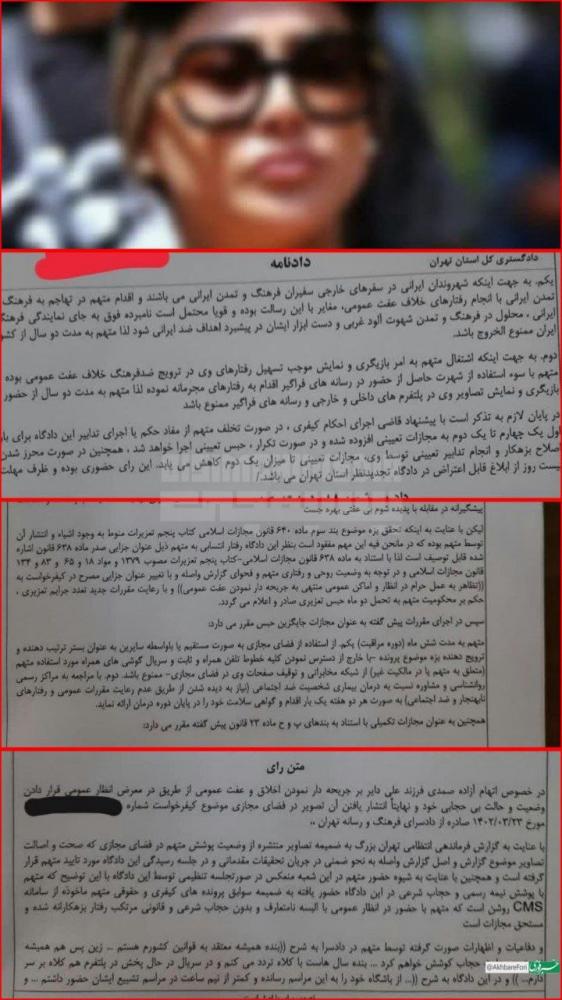 دادگستری کل استان تهران
دادنامه
یکم. به جهت اینکه شهروندان ایرانی در سفرهای خارجی سفیران فرهنگ و تمدن ایرانی می باشند و اقدام متهم در تهاجم به فرهنگ
تمدن ایرانی با انجام رفتارهای خلاف عفت عمومی، مغایر با این رسالت بوده و قویا محتمل است نامبرده فوق به جای نمایندگی فرهنگ
ایرانی ، محلول در فرهنگ و تمدن شهوت آلود غربی و دست ابزار ایشان در پیشبرد اهداف ضد ایرانی شود لذا متهم به مدت دو سال از کشور
ایران ممنوع الخروج باشد.
دوم. به جهت اینکه اشتغال متهم به امر بازیگری و نمایش موجب تسهیل رفتارهای وی در ترویج ضدفرهنگ خلاف عفت عمومی بوده
متهم با سوء استفاده از شهرت حاصل از حضور در رسانه های فراگیر اقدام به رفتارهای مجرمانه نموده لذا متهم به مدت دو سال از حضور
بازیگری و نمایش تصاویر وی در پلتفرم های داخلی و خارجی و رسانه های فراگیر ممنوع باشد
در پایان لازم به تذکر است با پیشنهاد قاضی اجرای احکام کیفری ، در صورت تخلف متهم از مفاد حکم یا اجرای تدابیر این دادگاه برای بار
اول یک چهارم تا یک دوم به مجازات تعیینی افزوده شده و در صورت تکرار ، حبس تعیینی اجرا خواهد شد ، همچنین در صورت محرز شدن
اصلاح بزهکار و انجام تدابیر تعیینی توسط وی، مجازات تعیینی تا میزان یک دوم کاهش می یابد. این رای حضوری بوده و ظرف مهلت
بیست روز از ابلاغ قابل اعتراض در دادگاه تجدیدنظر استان تهران می باشد./
پیشگیرانه در مقابله با پدیده شوم بی عفتی بهره جست
لیکن با عنایت به اینکه تحقق بزه موضوع بند سوم ماده ۶۴۰ قانون مجازات اسلامی کتاب پنجم تعزیرات منوط به وجود اشیاء و انتشار آن
توسط متهم بوده که در مانحن فیه این مهم مفقود است بنظر این دادگاه رفتار انتسابی به متهم ذیل عنوان جزایی صدر ماده ۶۳۸ قانون اشاره
شده قابل توصیف است لذا با استناد به ماده ۶۳۸ قانون مجازات اسلامی-کتاب پنجم تعزیرات مصوب ۱۳۷۹ و مواد ۱۸ و ۶۵ و ۸۳ و ۱۳۴
قانون مجازات اسلامی و در توجه به وضعیت روحی و رفتاری متهم و فحوای گزارش واصله و با تغییر عنوان جزایی مصرح در کیفرخواست به
((تظاهر به عمل حرام در انظار و اماکن عمومی منتهی به جریحه دار نمودن عفت عمومی)) و با رعایت مقررات جدید تعدد جرایم تعزیری ،
حکم بر محکومیت متهم به تحمل دو ماه حبس تعزیری صادر و اعلام می گردد.
سپس در اجرای مقررات پیش گفته به عنوان مجازات جایگزین حبس مقرر می دارد:
متهم به مدت شش ماه (دوره مراقبت) یکم. از استفاده از فضای مجازی به صورت مستقیم یا باواسطه سایرین به عنوان بستر ترتیب دهنده و
ترویج دهنده بزه موضوع پرونده -با خارج از دسترس نمودن کلیه خطوط تلفن همراه و ثابت و سریال گوشی های همراه مورد استفاده متهم
(متعلق به متهم یا در مالکیت غیر) از شبکه مخابراتی و توقیف صفحات وی در فضای مجازی- ممنوع باشد. دوم. با مراجعه به مراکز رسمی
روانشناسی و مشاوره نسبت به درمان بیماری شخصیت ضد اجتماعی (نیاز به دیده شدن از طریق عدم رعایت مقررات عمومی و رفتارهای
نابهنجار و ضد اجتماعی) به صورت هر دو هفته یک بار اقدام و گواهی سلامت خود را در پایان دوره درمان ارائه نماید.
همچنین به عنوان مجازات تکمیلی با استناد به بندهای پ و ح ماده ۲۳ قانون پیش گفته مقرر می دارد:
متن رای
در خصوص اتهام آزاده صمدی فرزند علی دایر بر جریحه دار نمودن اخلاق و عفت عمومی از طریق در معرض انظار عمومی قرار دادن
وضعیت و حالت بی حجابی خود و نهایتاً انتشار یافتن آن تصویر در فضای مجازی موضوع کیفرخواست شماره
مورخ ۱۴۰۲/۰۳/۲۳ صادره از دادسرای فرهنگ و رسانه تهران ،،
با عنایت به گزارش فرماندهی انتظامی تهران بزرگ به ضمیمه تصاویر منتشره از وضعیت پوشش متهم در فضای مجازی که صحت و اصالت
تصاویر موضوع گزارش و اصل گزارش واصله به نحو ضمنی در جریان تحقیقات مقدماتی و در جلسه رسیدگی این دادگاه مورد تایید متهم قرار
گرفته است و همچنین با عنایت به شیوه حضور متهم در این شعبه منعکس در صورتجلسه تنظیمی توسط این دادگاه با این توضیح که متهم
با پوشش نیمه رسمی و حجاب شرعی در این دادگاه حضور یافته به ضمیمه سوابق پرونده های کیفری و حقوقی متهم ماخوذه از سامانه
CMS روشن است که متهم با حضور در انظار عمومی با البسه نامتعارف و بدون حجاب شرعی و قانونی مرتکب رفتار بزهکارانه شده و
مستحق مجازات است
و دفاعیات و اظهارات صورت گرفته توسط متهم در دادسرا به شرح ((بنده همیشه معتقد به قوانین کشورم هستم ... زین پس هم همیشه
حجاب کوشش خواهم کرد ... بنده سال هاست با کلاه تردد می کنم و در سریال در حال پخش در پلتفرم هم کلاه بر سر
دارم.. )) و در این دادگاه به شرح ((... از باشگاه خود را به این مراسم رسانده و کمتر از نیم ساعت در مراسم تشییع ایشان حضور داشتم ... و
@AkhbareFori